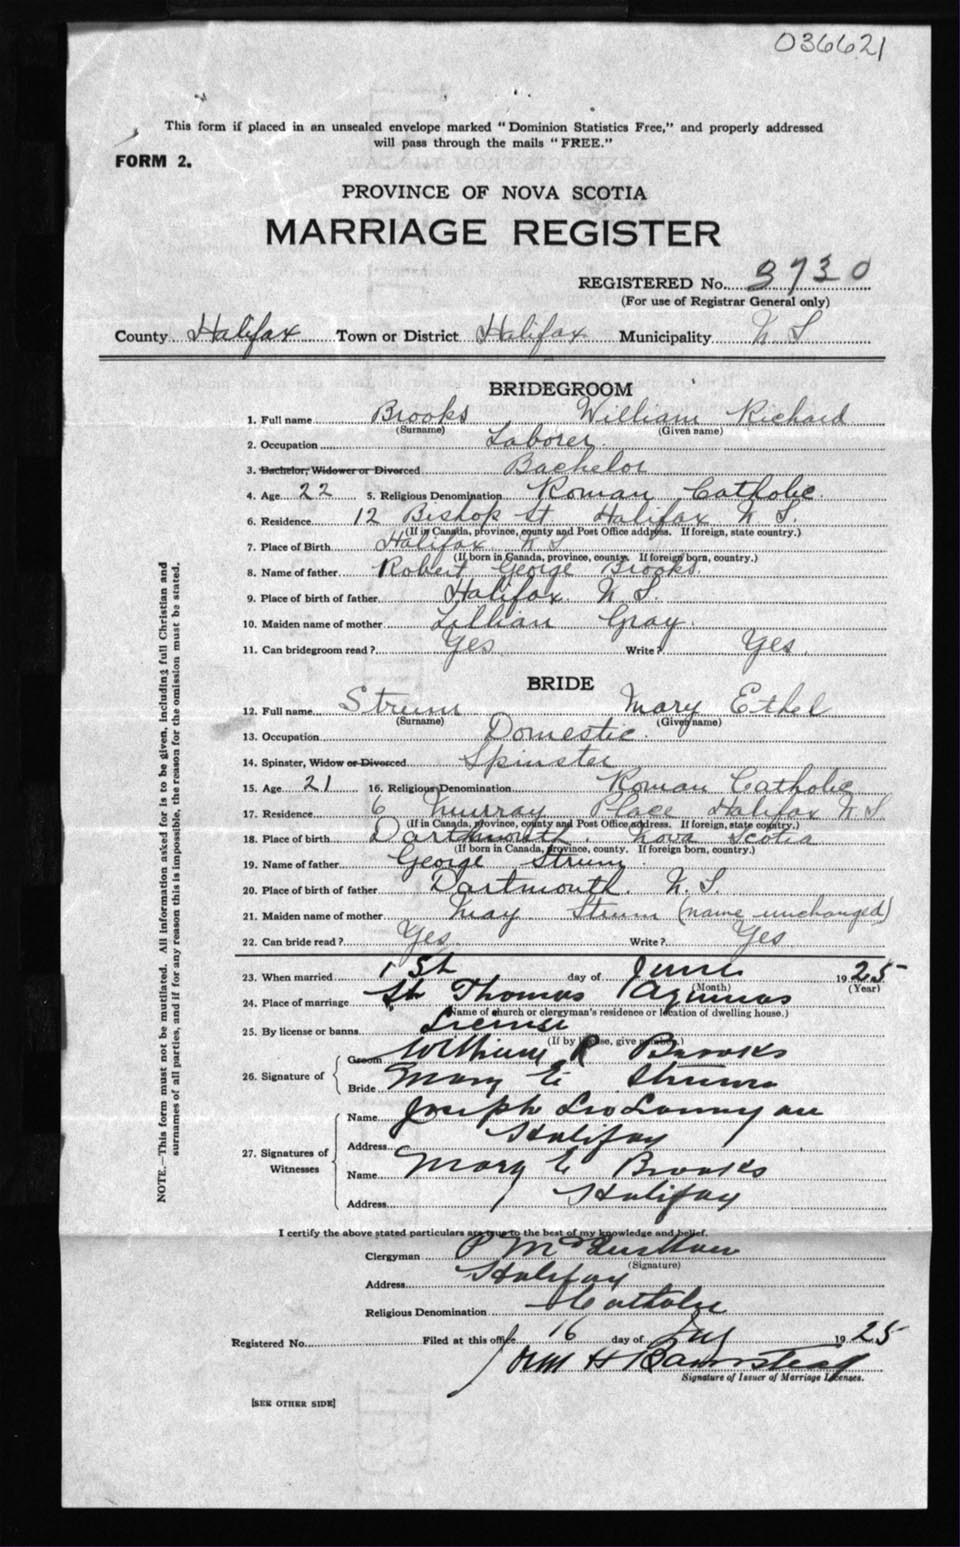 036621
This form if placed in an unsealed envelope marked "Dominion Statistics Free," and properly addressed
will pass through the mails "FREE."
FORM 2.
PROVINCE OF NOVA SCOTIA
MARRIAGE REGISTER
REGISTERED No. 3730
(For use of Registrar General only)
County Halifax Town or District Halifax Municipality N S
BRIDEGROOM
1. Full name Brooks William Richard
(Surname) (Given name)
2. Occupation Laborer.
3. Bachelor, Widower or Divorced Bachelor
4. Age 22 5. Religious Denomination Roman Catholic.
6. Residence 12 Bishop St Halifax N S.
(If in Canada, province, county and Post Office address. If foreign, state country.)
7. Place of Birth Halifax N S
(If born in Canada, province, county. If foreign born, country.)
8. Name of father Robert George Brooks.
9. Place of birth of father Halifax N S.
10. Maiden name of mother Lillian Gray.
11. Can bridegroom read? Yes Write? Yes.
BRIDE
12. Full name Strum Mary Ethel
(Surname) (Given name)
13. Occupation Domestic.
14. Spinster, Widow or Divorced Spinster
15. Age 21 16. Religious Denomination Roman Catholic
17. Residence 6 Murray Place Halifax N S
(If in Canada, province, county and Post Office address. If foreign, state country.)
18. Place of birth Dartmouth. Nova Scotia
(If born in Canada, province, county. If foreign born, country.)
19. Name of father George Strum.
20. Place of birth of father Dartmouth. N. S.
21. Maiden name of mother May Strum (name unchanged)
22. Can bride read? Yes Write? Yes
23. When married 1 St day of June 1925
(Month) (Year)
24. Place of marriage St Thomas Aquinas
(Name of church or clergyman's residence or location of dwelling house.)
25. By license or banns License
(If by license, give number.)
26. Signature of
Groom William R Brooks
Bride Mary E Strum
27. Signatures of Witnesses
Name Joseph Leo
Address Halifax
Name Mary E Brooks
Address Halifax
I certify the above stated particulars are true to the best of my knowledge and belief.
Clergyman
(Signature)
Address Halifax
Religious Denomination Catholic
Registered No. Filed at this office 16 day of 1925
John H Barnstead
Signature of Issuer of Marriage Licenses.
[SEE OTHER SIDE]
NOTE.—This form must not be mutilated. All information asked for is to be given, including full Christian and
surnames of all parties, and if for any reason this is impossible, the reason for the omission must be stated.